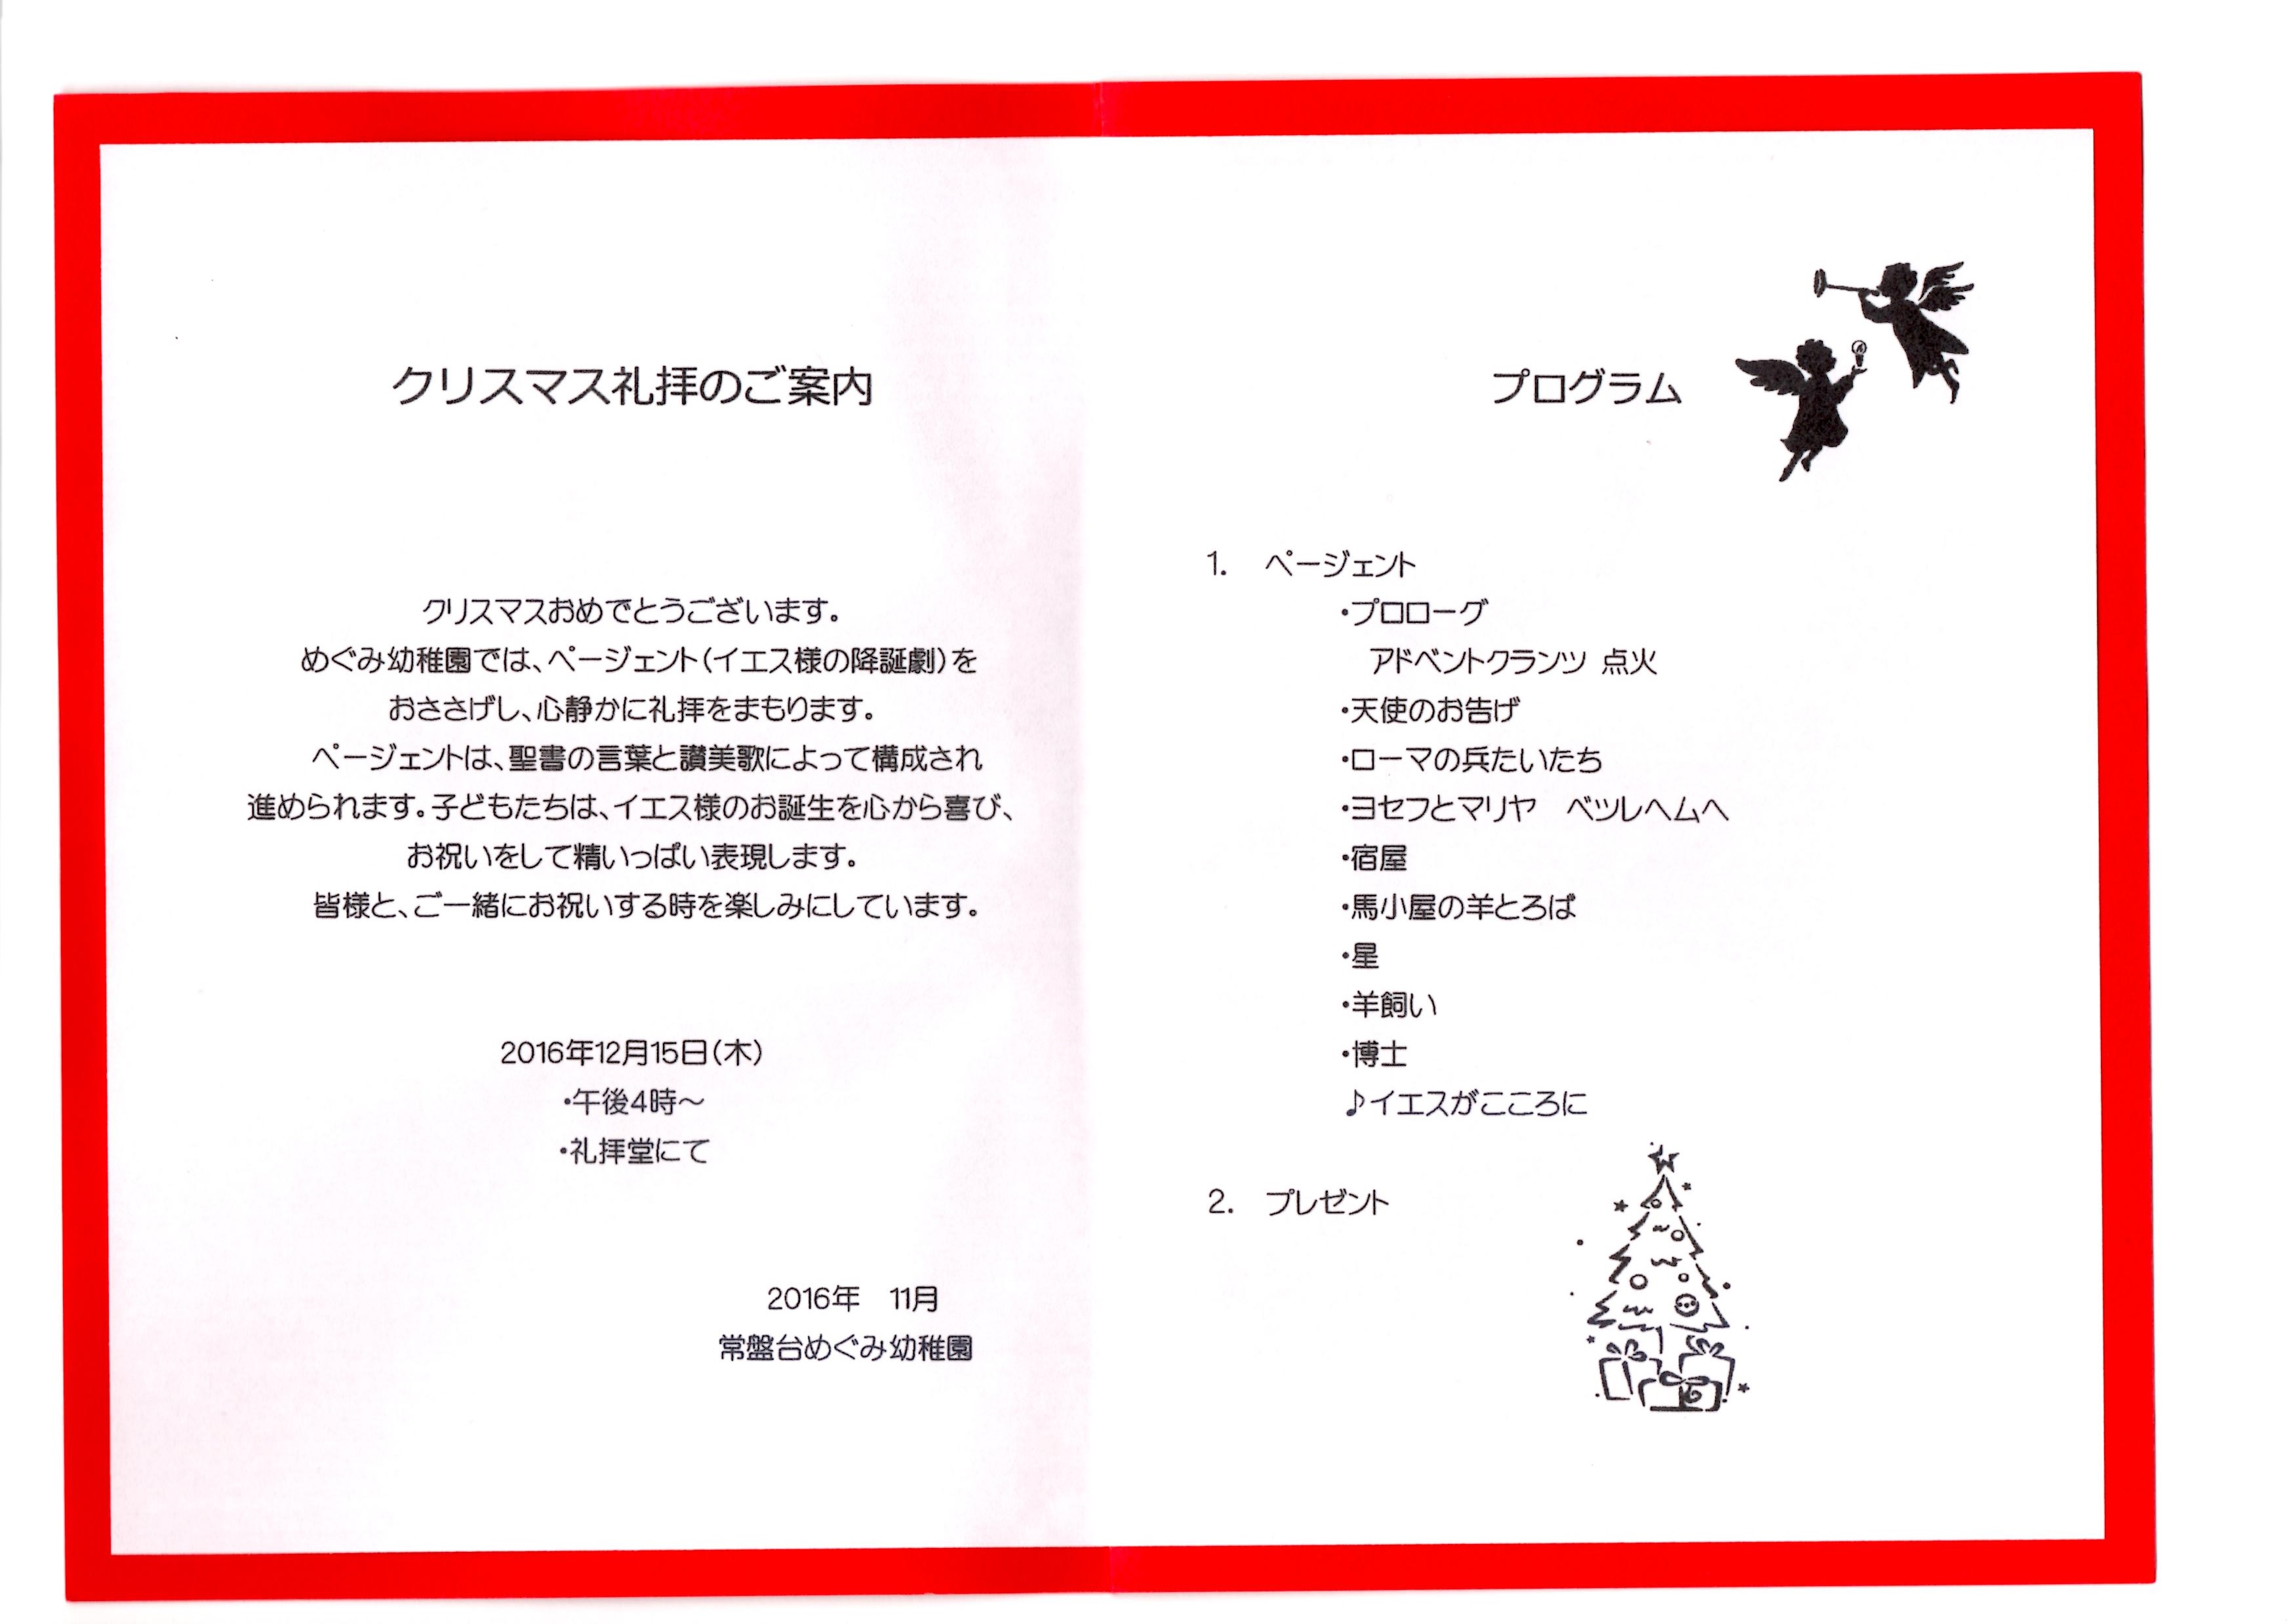 クリスマス礼拝のご案内
クリスマスおめでとうございます。
めぐみ幼稚園では、ページェント（イエス様の降誕劇）を
おささげし、心静かに礼拝をまもります。
ページェントは、聖書の言葉と讃美歌によって構成され
進められます。子どもたちは、イエス様のお誕生を心から喜び、
お祝いをして精いっぱい表現します。
皆様と、ご一緒にお祝いする時を楽しみにしています。
2016年12月15日（木）
・午後4時～
・礼拝堂にて
2016年　11月
常盤台めぐみ幼稚園
プログラム
1.　ページェント
・プロローグ
アドベントクランツ 点火
・天使のお告げ
・ローマの兵たいたち
・ヨセフとマリヤ　ベツレヘムへ
・宿屋
・馬小屋の羊とろば
・星
・羊飼い
・博士
♪イエスがこころに
2.　プレゼント